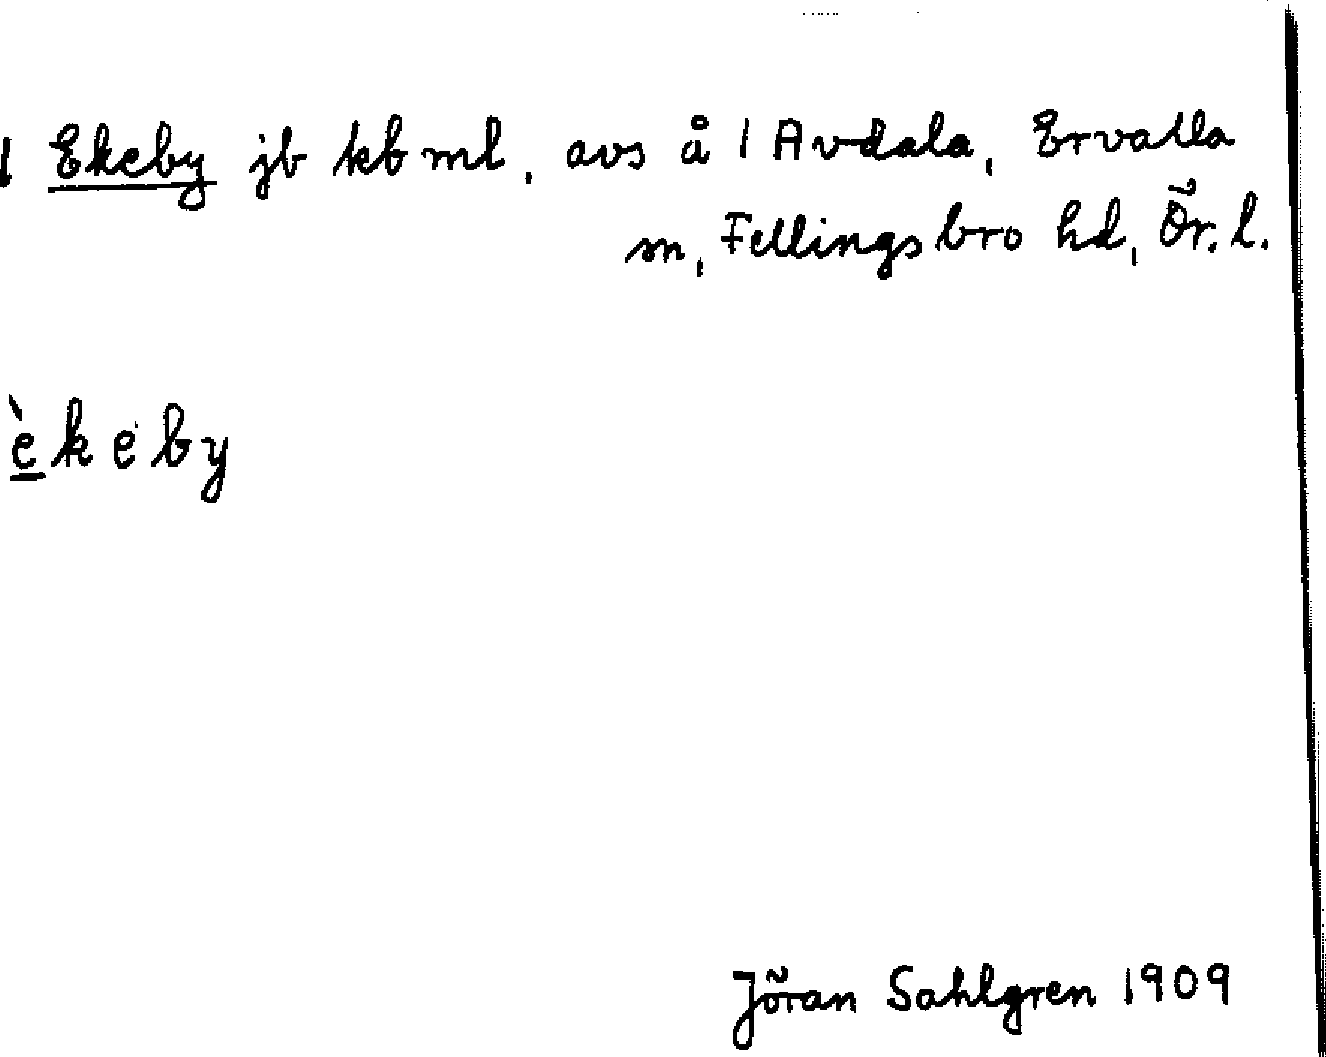 1 Ekeby jb kb ml, avs å 1 Avdala, Ervalla
sn, Fellingsbro hd, Ör. l.
èkeby
Jöran Sahlgren 1909